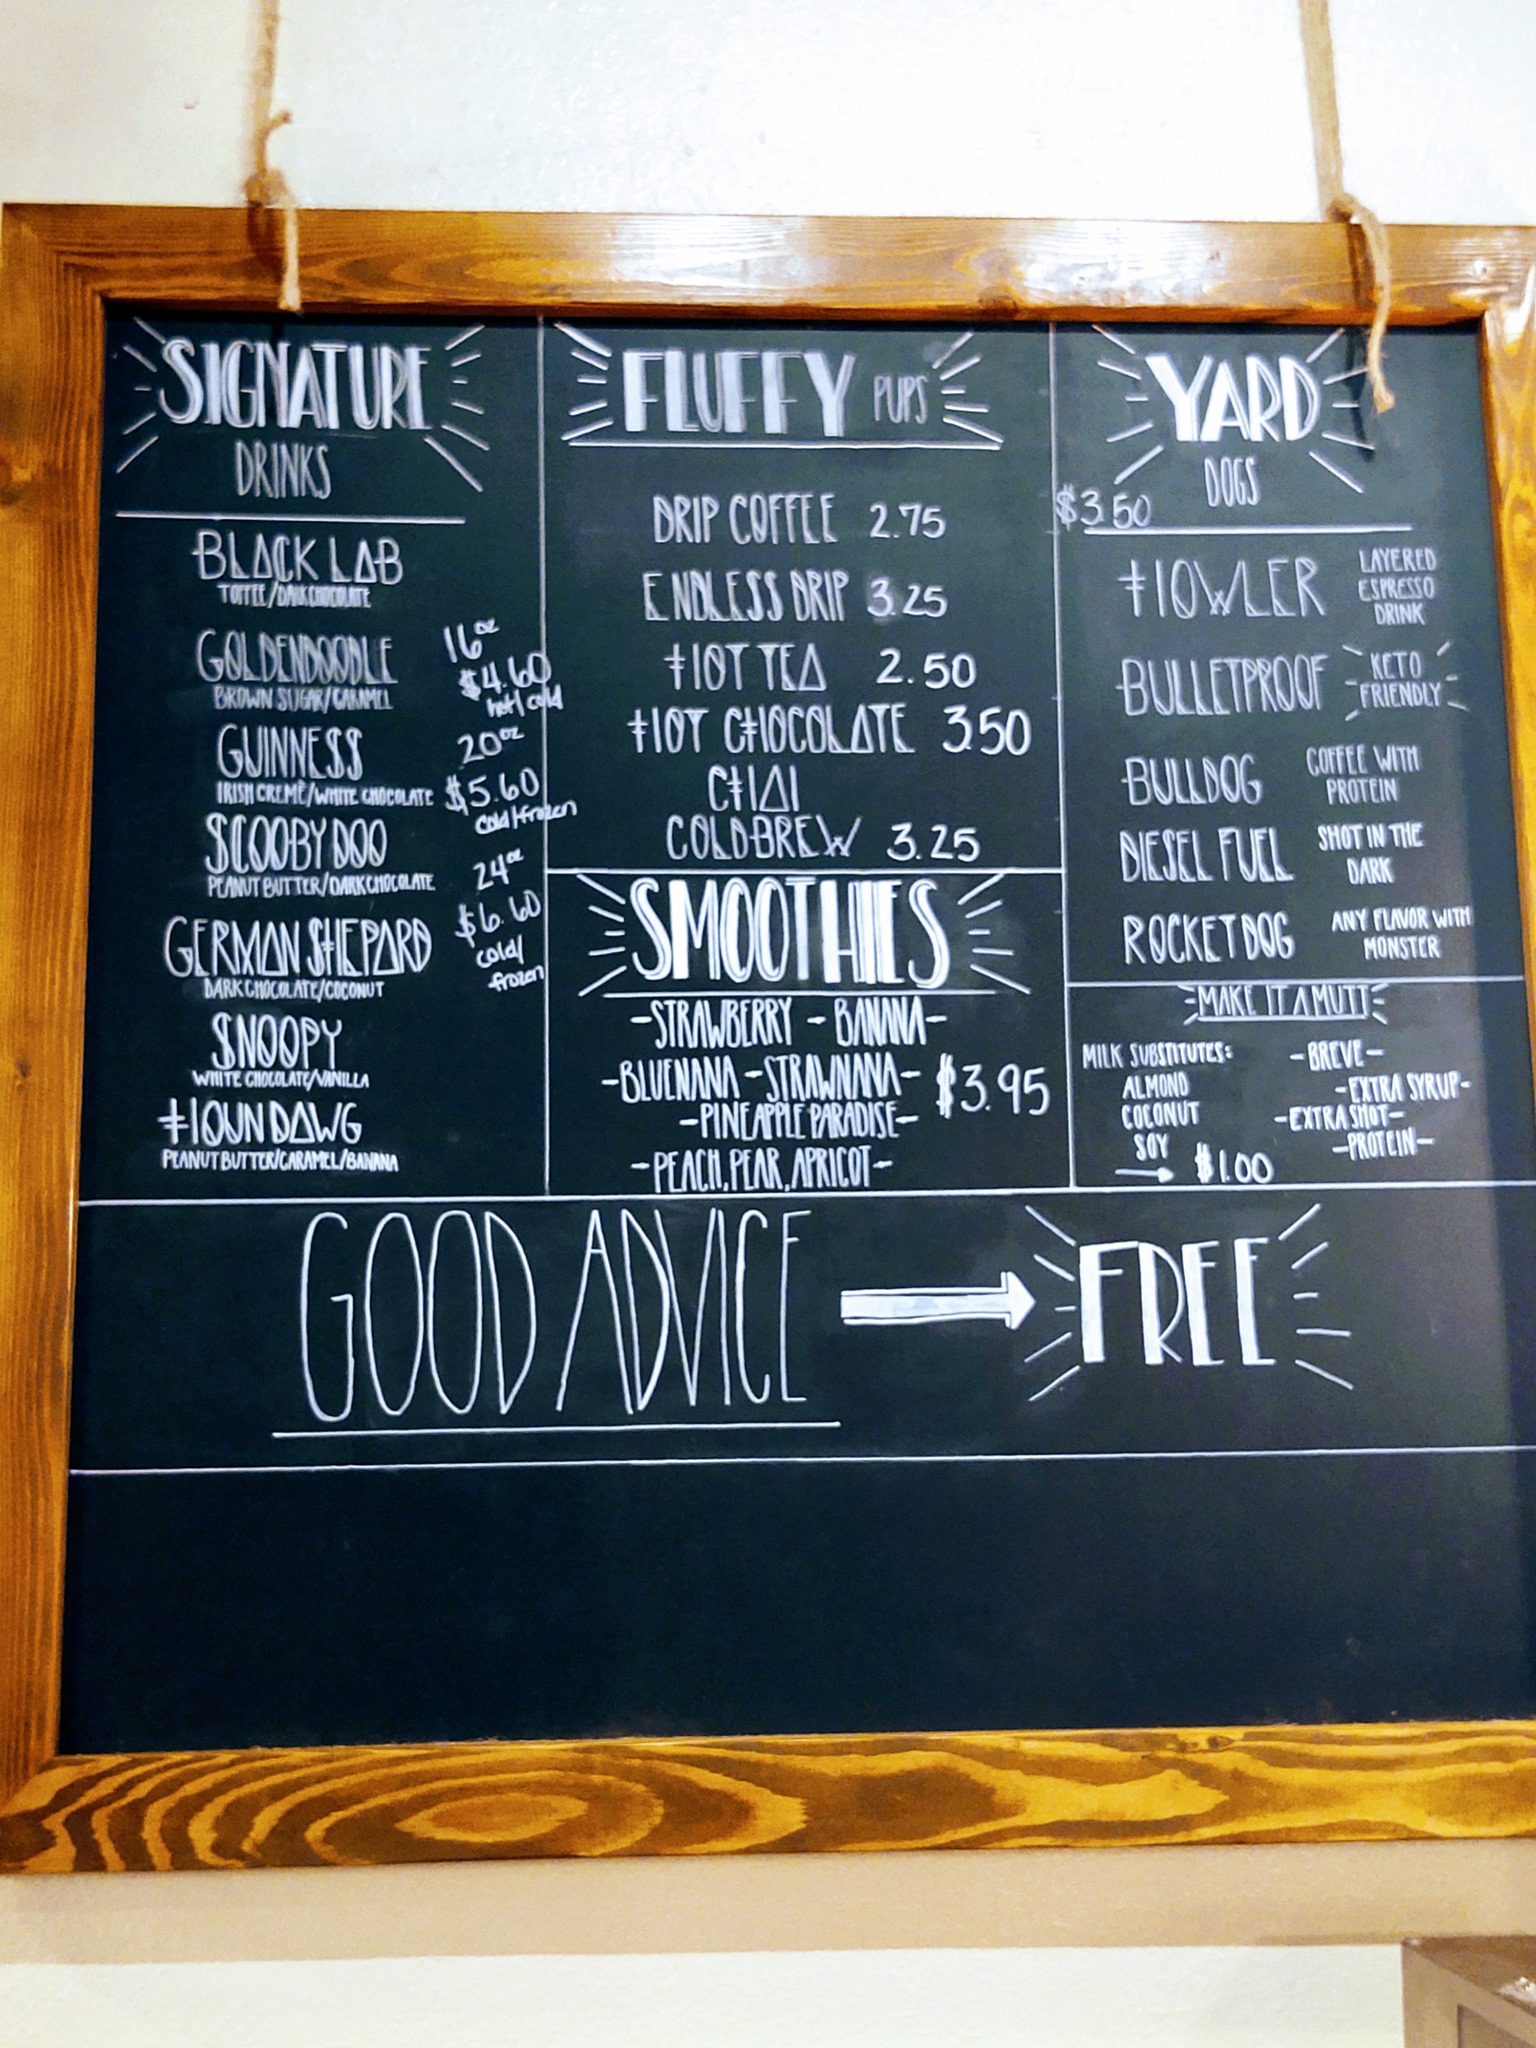 SIGNATURE
DRINKS
BLACK LAB
TOFFEE/DARK CHOCOLATE
GOLDENDOODLE
BROWN SUGAR/CARAMEL
GUINNESS
IRISH CREME/WHITE CHOCOLATE
SCOOBY DOO
PEANUT BUTTER/DARK CHOCOLATE
GERMAN SHEPARD
DARK CHOCOLATE/COCONUT
SNOOPY
WHITE CHOCOLATE/VANILLA
HOUN DAWG
PEANUT BUTTER/CARAMEL/BANANA
16oz
$4.60
hot/cold
20oz
$5.60
cold/frozen
24oz
$6.60
cold/
frozen
FLUFFY PUPS
DRIP COFFEE 2.75
ENDLESS DRIP 3.25
HOT TEA 2.50
HOT CHOCOLATE 3.50
CHAI
COLDBREW 3.25
SMOOTHIES
-STRAWBERRY - BANANA-
-BLUENANA -STRAWNANA-
-PINEAPPLE PARADISE-
$3.95
-PEACH, PEAR, APRICOT-
YARD
DOGS
$3.50
HOWLER LAYERED
ESPRESSO
DRINK
BULLETPROOF KETO
FRIENDLY
BULLDOG COFFEE WITH
PROTEIN
DIESEL FUEL SHOT IN THE
DARK
ROCKET DOG ANY FLAVOR WITH
MONSTER
MAKE IT A MUTT
MILK SUBSTITUTES:
ALMOND
COCONUT
SOY
-BREVE-
-EXTRA SYRUP-
-EXTRA SHOT-
-PROTEIN-
→ $1.00
GOOD ADVICE → FREE